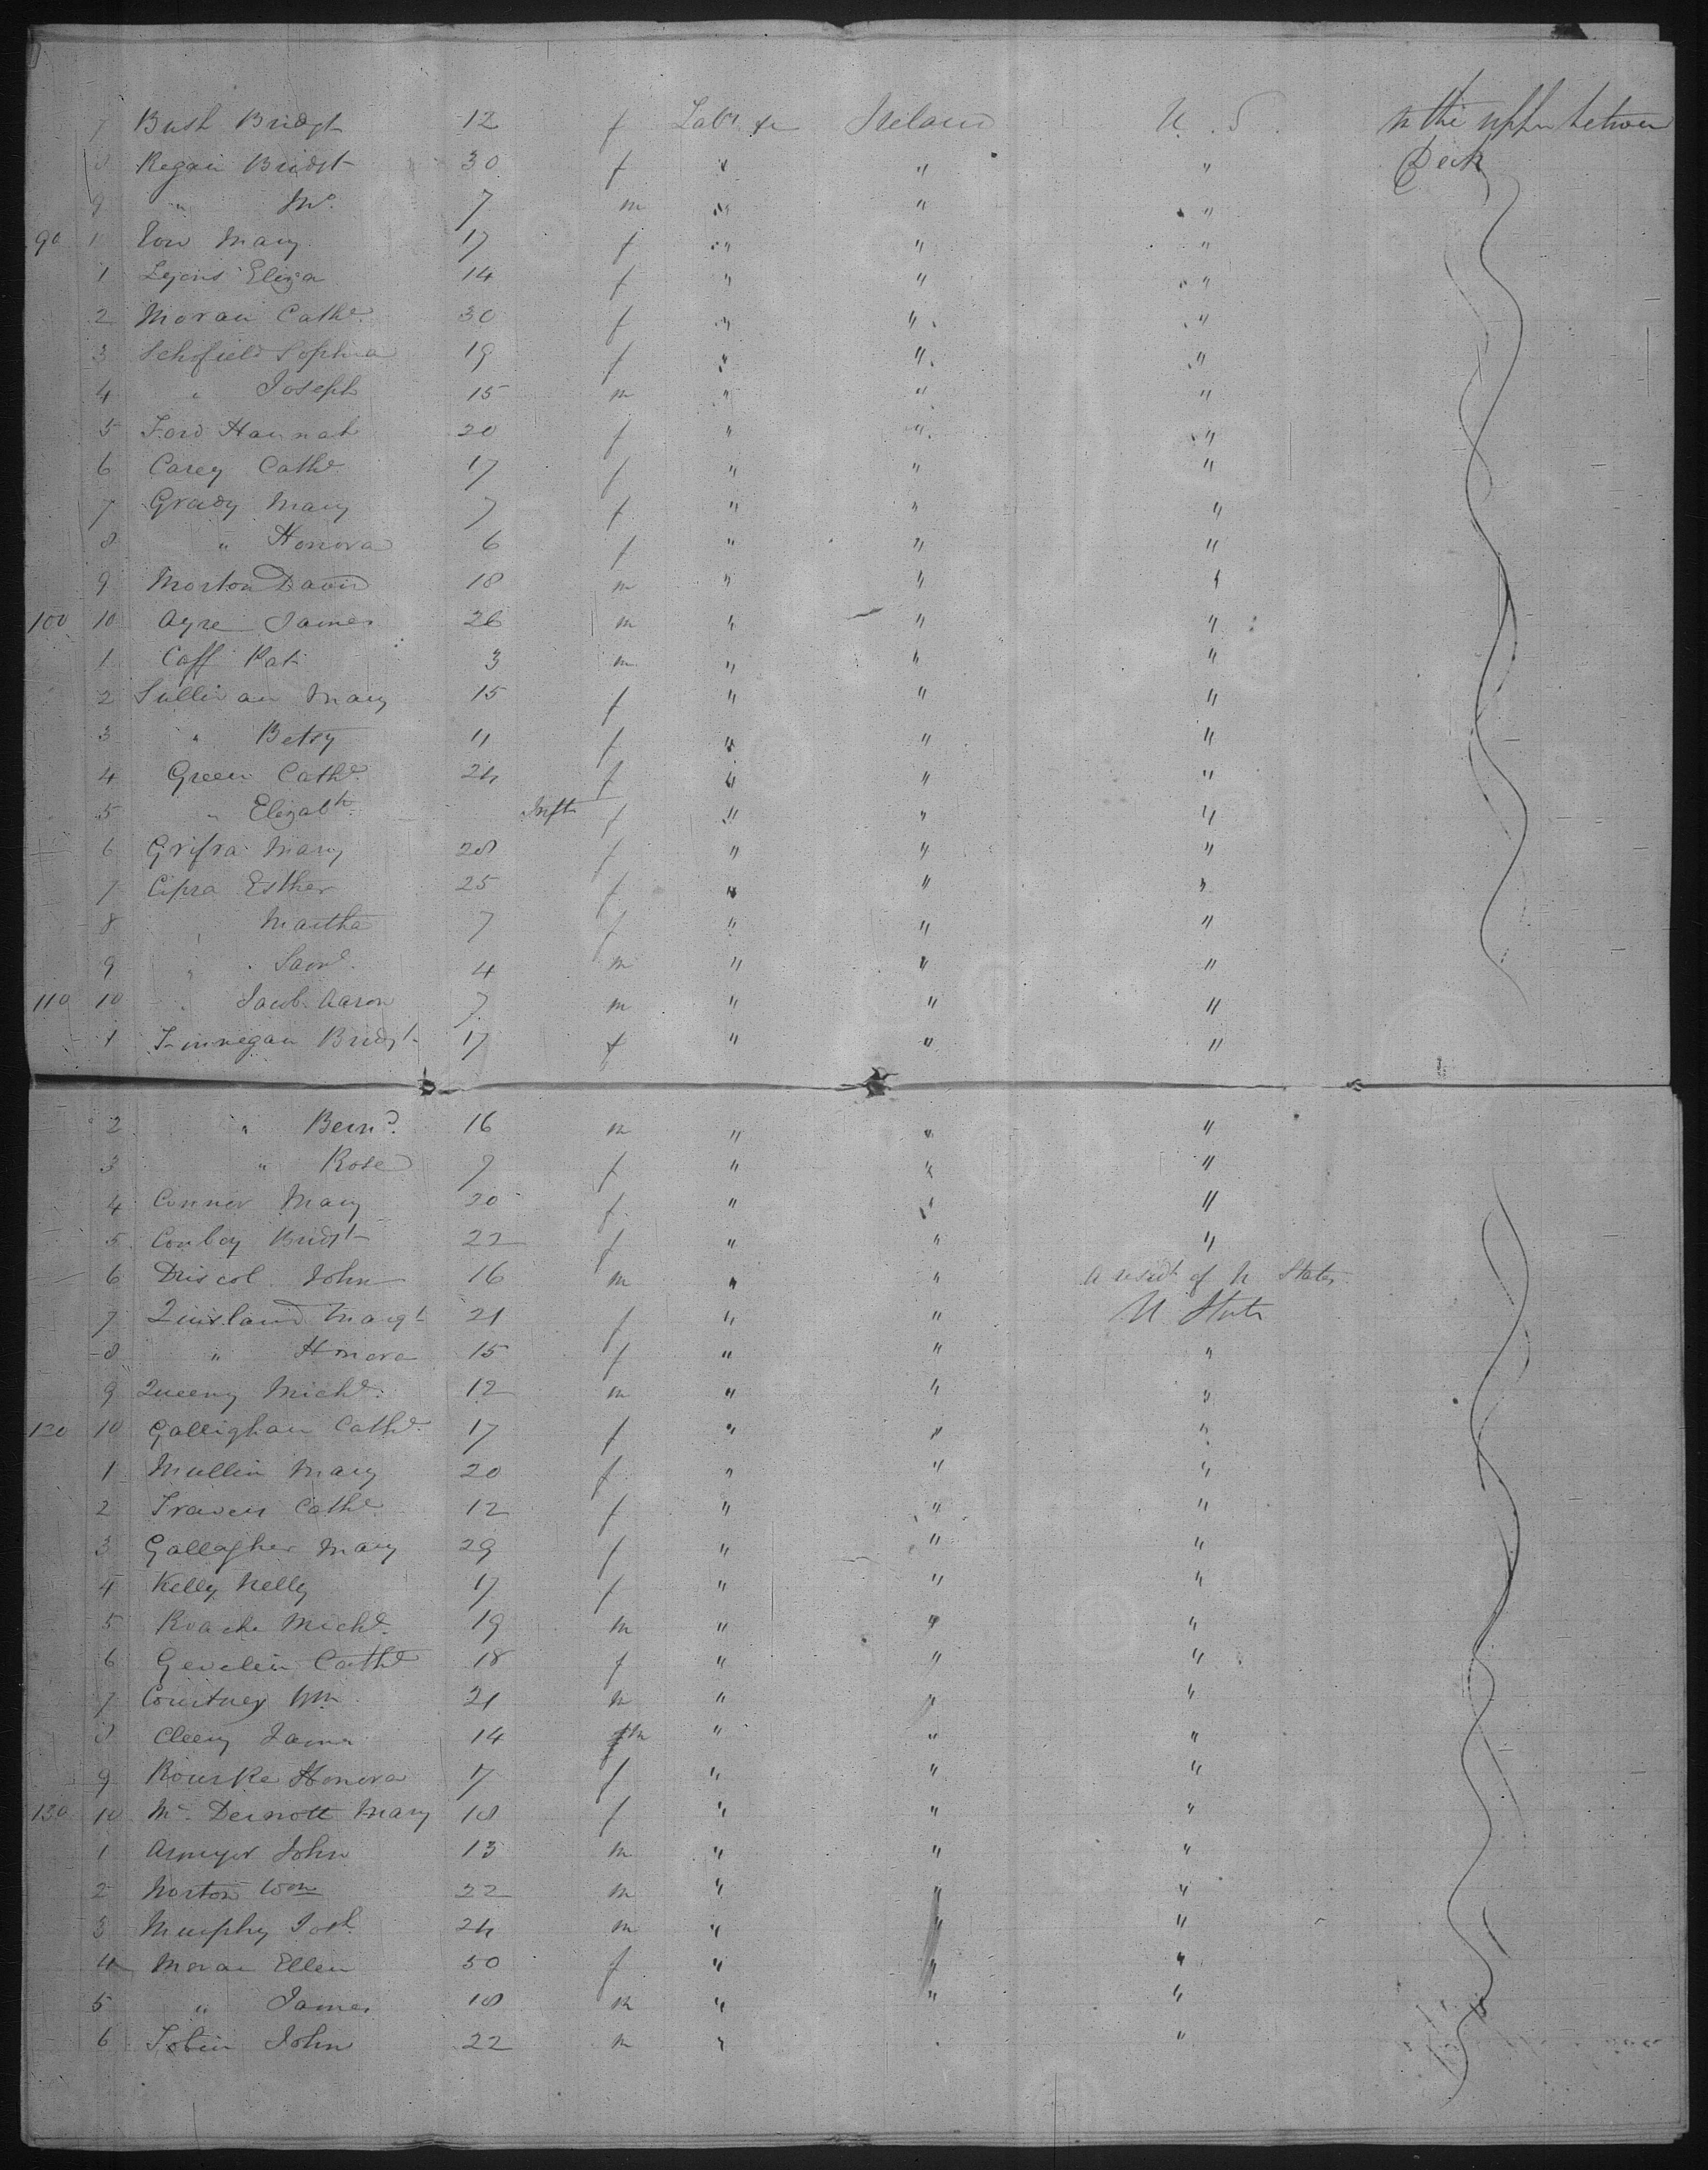 7 Bush Bridgt 12 f Labr &c Ireland U. S. In the upper between
8 Regan Bridgt 30 f " " " Deck
9 " Jno. 7 m " " "
90 10 Mary 17 f " " "
1 Lyons Eliza 14 f " " "
2 Moran Cathe. 30 f " " "
3 Schofield Sophia 19 f " " "
4 " Joseph 15 m " " "
5 Ford Hannah 20 f " " "
6 Carey Cathe 17 f " " "
7 Grady Mary 7 f " " "
8 " Honora 6 f " " "
9 Morton David 18 m " " "
100 10 Ayre James 26 m " " "
1 Caff Pat. 3 m " " "
2 Sullivan Mary 15 f " " "
3 " Betsy 11 f " " "
4 Green Cathe. 24 f " " "
5 " Elizabth. Inft f " " "
6 Mary 28 f " " "
7 Cipra Esther 25 f " " "
8 " Martha 7 f " " "
9 " Saml. 4 m " " "
110 10 " Jacob Aaron 7 m " " "
1 Finnegan Bridgt 17 f " " "
2 " Bernd. 16 m " " "
3 " Rose 9 f " " "
4 Connor Mary 20 f " " "
5 Conboy Bridgt 22 f " " "
6 Driscol John 16 m " " A residt of U States
7 Quinland Margt 21 f " " U. States
8 " Honora 15 f " " "
9 Queeny Michl. 12 m " " "
120 10 Gallighan Cathe. 17 f " " "
1 Mullin Mary 20 f " " "
2 Travers Cathe. 12 f " " "
3 Gallagher Mary 29 f " " "
4 Kelly Nelly 17 f " " "
5 Roache Michl. 19 m " " "
6 Gevelin Cathe 18 f " " "
7 Courtney Wm. 21 m " " "
8 Cleery James 14 m " " "
9 Rourke Honora 17 f " " "
130 10 Mc. Dermott Mary 18 f " " "
1 John 13 m " " "
2 Norton Wm 22 m " " "
3 Murphy Josh. 24 m " " "
4 Moran Ellen 50 f " " "
5 " James 18 m " " "
6 Tobin John 22 m " " "